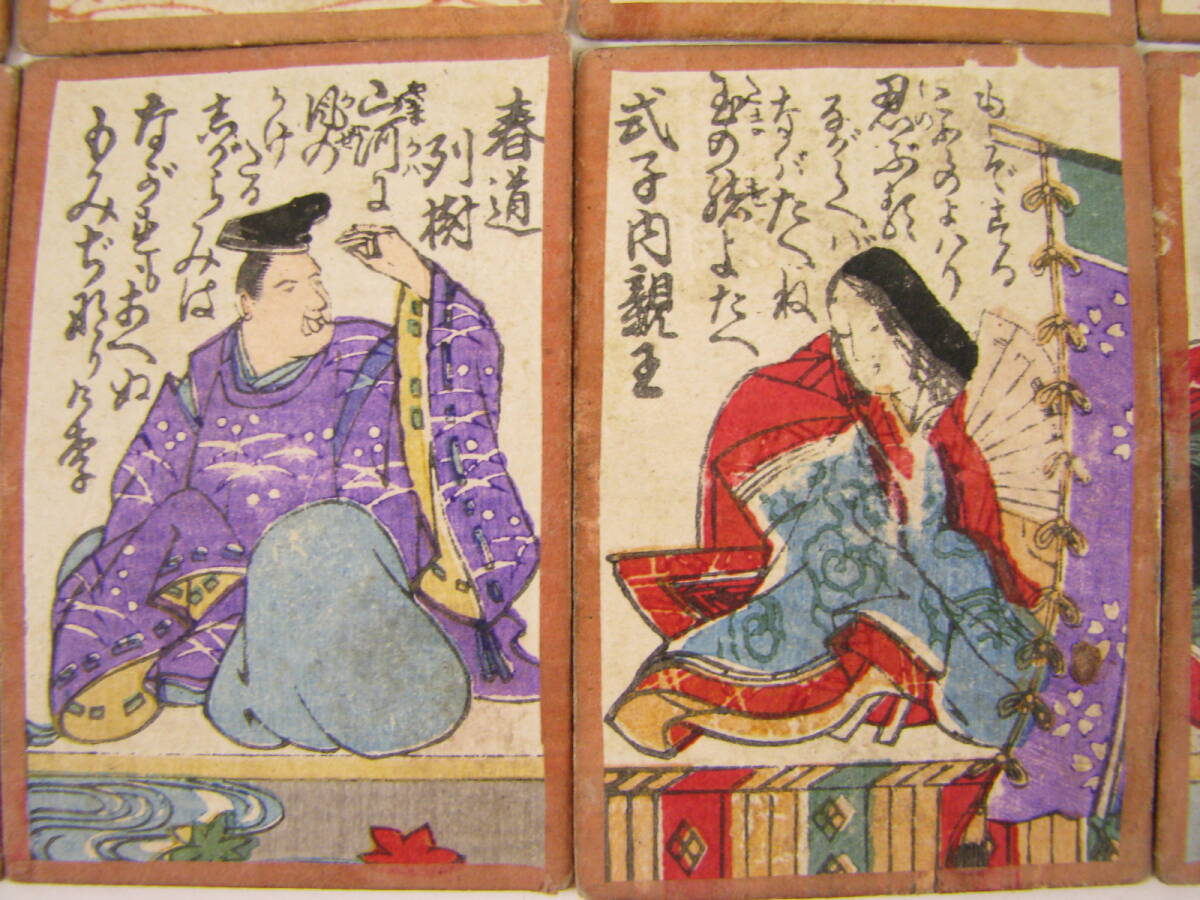 春道
列樹
山河に
風の
かけたる
志がらみは
ながれもあへぬ
もみぢなりけり
式子内親王
玉の緒よたへ
なばたへね
ながらへば
忍ぶる
ことのよハり
もぞする